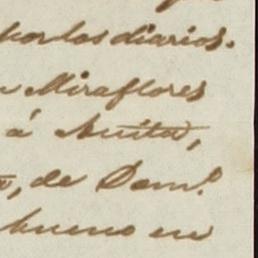 por los diarios.
Miraflores
á Anita,
, de Dom.º
bueno en